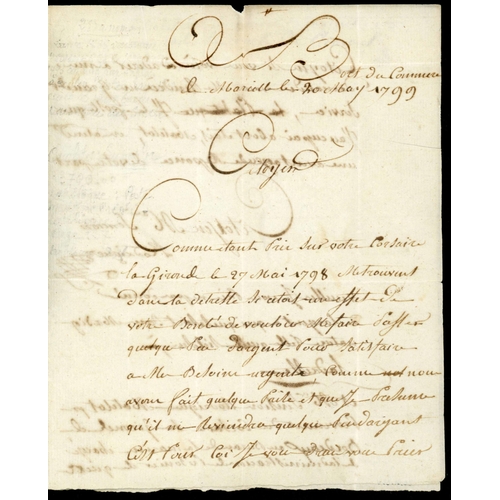 A B
Bort du Commerce
le Morielle le 20 May 1799
Citoyen
Comme etant Prie Sur votre Corsaire
la Girond le 27 Mai 1798 Metrouvent
dans la detresse Seretoit un effet de
votre Bonté de vouloir Mefaire Passer
quelque Peu dargent Pour Satisfaire
a Mes Besoins urgente, Comme nou
avon fait quelque Prise et que Je Presume
qu'il me Reviendra quelque Peudargent
C'est Pour Coi Je vou vou Prier